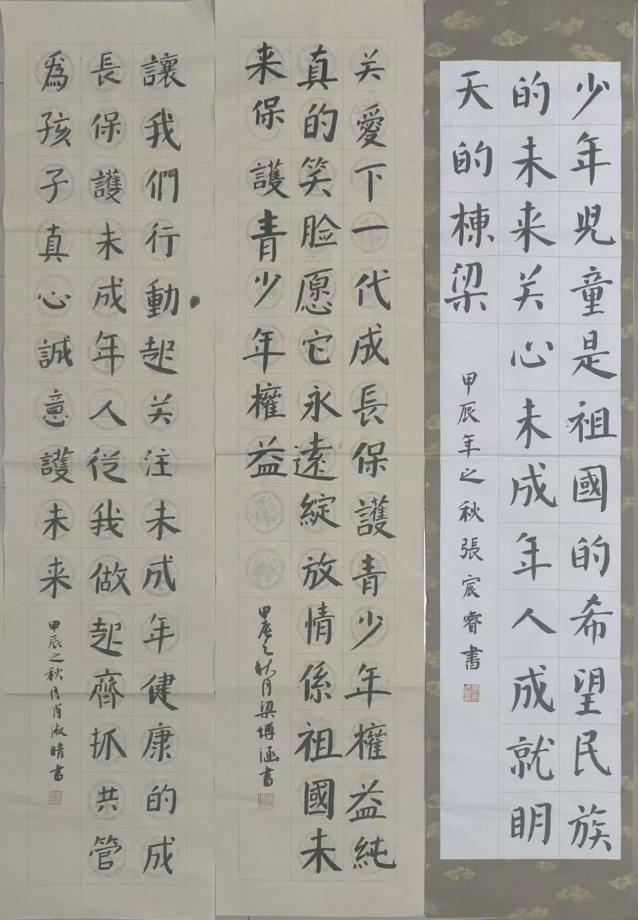 少年児童是祖國的希望民族
的未来关心未成年人成就明
天的棟梁
甲辰年之秋張宸睿書
关愛下一代成長保護青少年權益純
真的笑脸愿它永遠綻放情係祖國未
来保護青少年權益
甲辰之秋月梁博涵書
讓我們行動起关注未成年健康的成
長保護未成年人從我做起齊抓共管
為孩子真心誠意護未来
甲辰之秋月肖淑晴書